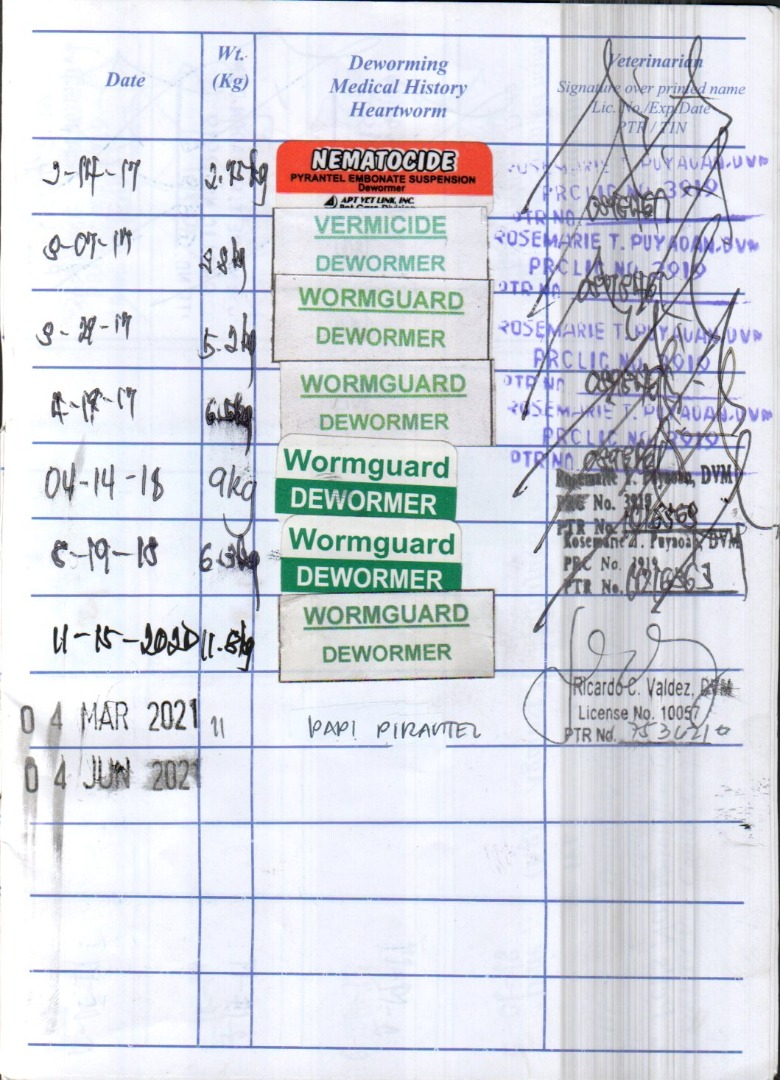 Date
Wt.
(Kg)
Deworming
Medical History
Heartworm
Veterinarian
Signature over printed name
Lic. No./Exp.Date
PTR / TIN
2.75kg
NEMATOCIDE
PYRANTEL EMBONATE SUSPENSION
Dewormer
APT VET LINK, INC.
ROSEMARIE T. PUYAOAN, DVM
PRC LIC NO. 3919
PTR NO.
VERMICIDE
DEWORMER
ROSEMARIE T. PUYAOAN, DVM
PRC LIC NO. 3919
PTR NO.
5.2kg
WORMGUARD
DEWORMER
ROSEMARIE T. PUYAOAN, DVM
PRC LIC NO. 3919
PTR NO
WORMGUARD
DEWORMER
ROSEMARIE T. PUYAOAN, DVM
PRC LIC NO. 3919
PTR NO.
04-14-18
9kg
Wormguard
DEWORMER
Rosemarie T. Puyaoan, DVM
PRC No. 3919
PTR No.
Wormguard
DEWORMER
Puyaoan, DVM
PRC No. 3919
PTR No.
11-15-2020
11.8kg
WORMGUARD
DEWORMER
04 MAR 2021
11
PAPI PIRANTEL
Ricardo C. Valdez, DVM
License No. 10057
PTR No.
04 JUN 2021